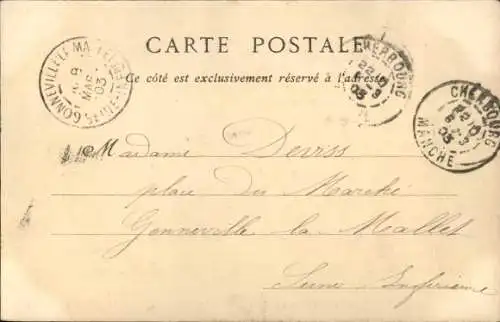 CARTE POSTALE
Ce côté est exclusivement réservé à l'adresse
GONNEVILLE LA MALLET
9
MARS
03
CHERBOURG
03
CHERBOURG
03
MANCHE
Madame Deviss
place du Marché
Gonneville la Mallet
Seine Inférieure